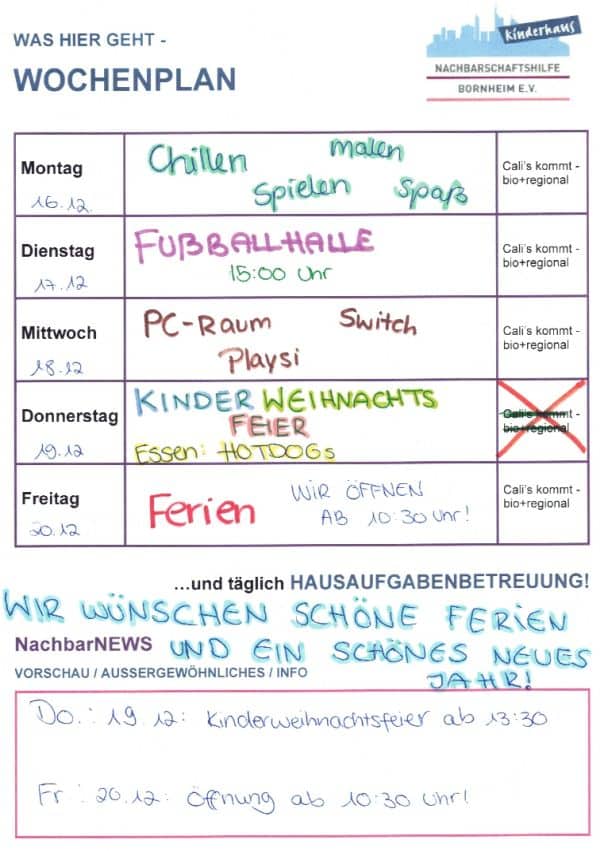 WAS HIER GEHT -
WOCHENPLAN
kinderhaus
NACHBARSCHAFTSHILFE
BORNHEIM E.V.
Montag
16.12.
Chillen malen
Spielen Spaß
Cali's kommt -
bio+regional
Dienstag
17.12
FUßBALLHALLE
15:00 Uhr
Cali's kommt -
bio+regional
Mittwoch
18.12
PC-Raum Switch
Playsi
Cali's kommt -
bio+regional
Donnerstag
19.12
KINDER WEIHNACHTS
FEIER
Essen: HOTDOGs
Cali's kommt -
bio+regional
Freitag
20.12
Ferien
WIR ÖFFNEN
AB 10:30 Uhr!
Cali's kommt -
bio+regional
...und täglich HAUSAUFGABENBETREUUNG!
WIR WÜNSCHEN SCHÖNE FERIEN
UND EIN SCHÖNES NEUES
JAHR!
NachbarNEWS
VORSCHAU / AUSSERGEWÖHNLICHES / INFO
Do.: 19.12: Kinderweihnachtsfeier ab 13:30
Fr: 20.12: Öffnung ab 10:30 Uhr!